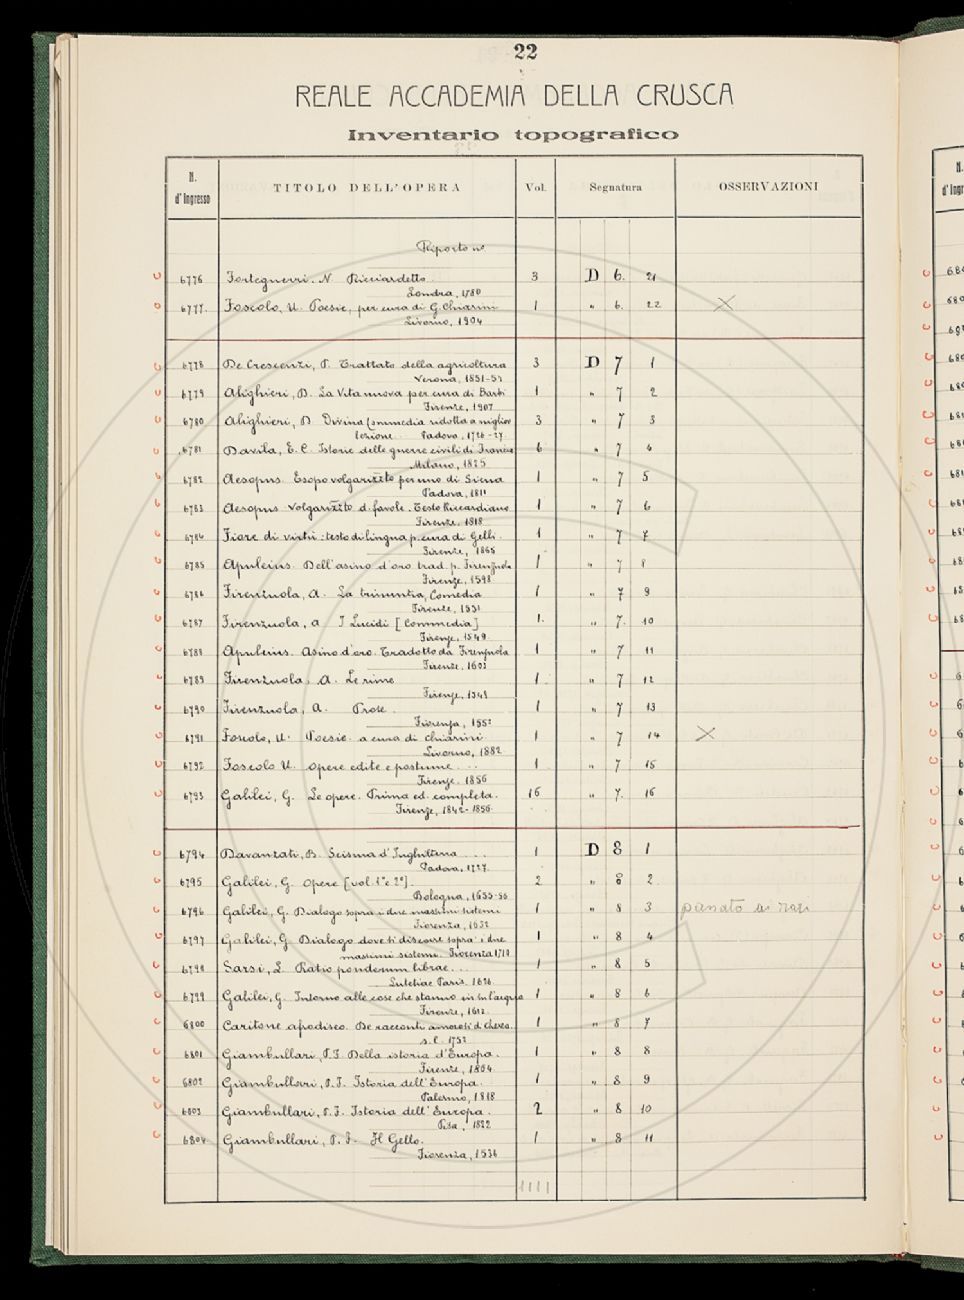 22
REALE ACCADEMIA DELLA CRUSCA
Inventario topografico
N. d'Ingresso TITOLO DELL'OPERA Vol. Segnatura OSSERVAZIONI
Riporto n°
6776 Forteguerri. N. Ricciardetto 3 D 6. 21
Londra, 1780
6777. Foscolo, U. Poesie, per cura di G. Chiarini 1 " 6. 22 X
Livorno, 1904
6778 De Crescenzi, P. Trattato della agricoltura 3 D 7 1
Verona, 1851-52
6779 Alighieri, D. La Vita nuova per cura di Barbi 1 " 7 2
Firenze, 1907
6780 Alighieri, D. Divina Commedia ridotta a miglior 3 " 7 3
lezione Padova, 1726-27.
6781 Davila, E. C. Istorie delle guerre civili di Francia 6 " 7 4
Milano, 1825
6782 Aesopus. Esopo volgarizzato per uno di Siena 1 " 7 5
Padova, 1811
6783 Aesopus. Volgarizzto d. favole. Testo Riccardiano 1 " 7 6
Firenze, 1818
6784 Fiore di virtù: testo di lingua p. cura di Gelli. 1 " 7 7
Firenze, 1865
6785 Apuleius. Dell'asino d'oro trad. p. Firenzuola 1 " 7 8
Firenze, 1598
6786 Firenzuola, A. La trinunzia, Comedia 1 " 7 9
Firenze, 1551
6787 Firenzuola, A I Lucidi [Commedia] 1. " 7. 10
Firenze, 1549
6788 Apuleius. Asino d'oro. Tradotto da Firenzuola 1 " 7 11
Firenze, 1603
6789 Firenzuola, A. Le rime 1. " 7 12
Firenze, 1549
6790 Firenzuola, A. Prose. 1 " 7 13
Fiorenza, 1552
6791 Foscolo, U. Poesie a cura di Chiarini 1 " 7 14 X
Livorno, 1882.
6792 Foscolo U. Opere edite e postume... 1 " 7 15
Firenze. 1856
6793 Galilei, G. Le opere. Prima ed. completa. 16 " 7. 16
Firenze, 1842-1856.
6794 Davanzati, B. Scisma d'Inghilterra... 1 D 8 1
Padova, 1727.
6795 Galilei, G. Opere [vol. 1° e 2°]. 2 " 8 2
Bologna, 1655-56
6796 Galilei, G. Dialogo sopra i due massimi sistemi 1 " 8 3 passato ai rari
Fiorenza, 1632
6797 Galilei, G. Dialogo dove si discorre sopra i due 1 " 8 4
massimi sistemi. Fiorenza 1710
6798 Sarsi, L. Ratio ponderum librae... 1 " 8 5
Lutetiae Paris. 1626.
6799 Galilei, G. Intorno alle cose che stanno in su l'acqua 1 " 8 6
Firenze, 1612.
6800 Caritone afrodiseo. De racconti amorosi di Cherea. 1 " 8 7
s. l. 1752
6801 Giambullari, P. F. Della istoria d'Europa. 1 " 8 8
Firenze, 1864
6802 Giambullari, P. F. Istoria dell'Europa. 1 " 8 9
Palermo, 1818
6803 Giambullari, P. F. Istoria dell'Europa. 2 " 8 10
Pisa, 1822
6804 Giambullari, P. F. Il Gello. 1 " 8 11
Fiorenza, 1536